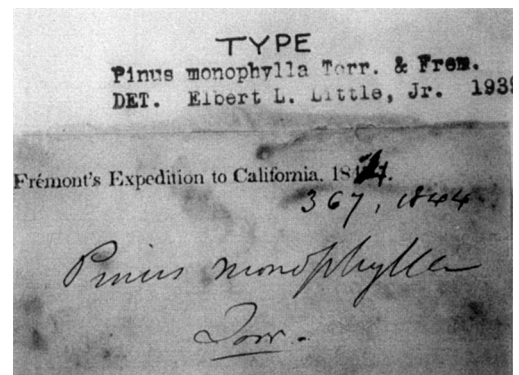 TYPE
Pinus monophylla Torr. & Frem.
DET. Elbert L. Little, Jr. 1939
Frémont's Expedition to California, 1844.
367, 1844
Pinus monophylla
Torr.